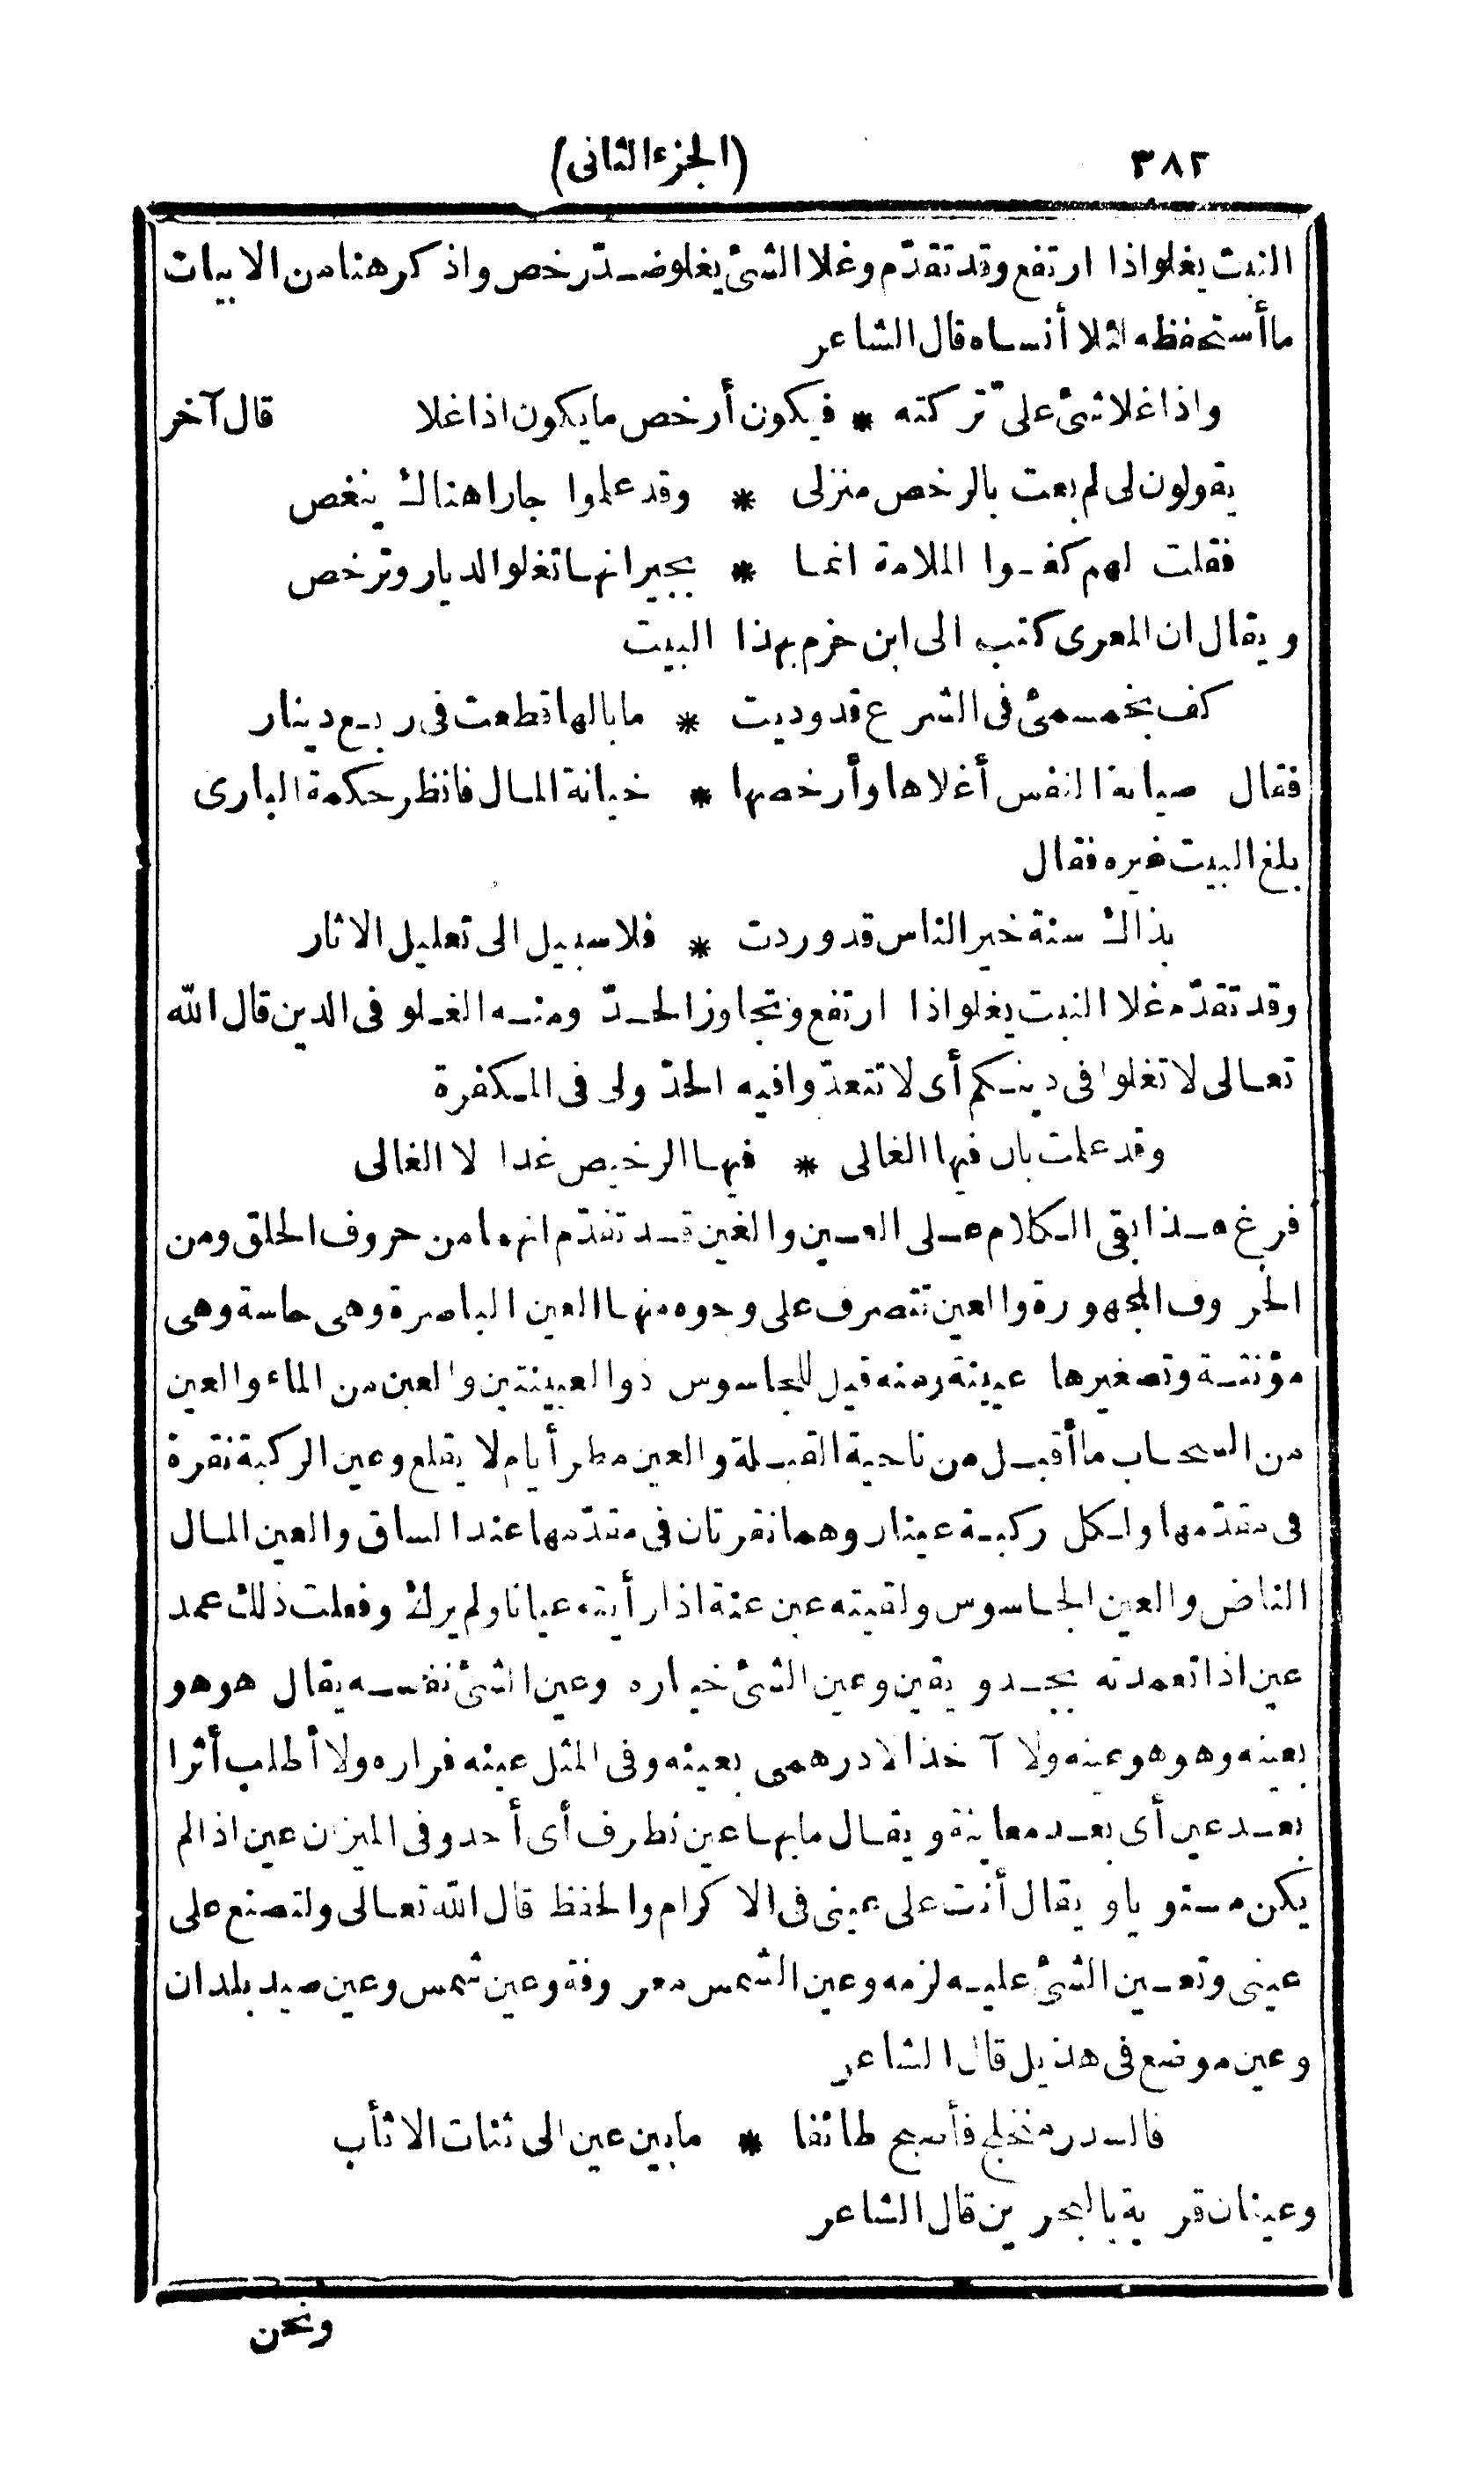 ٣٨٢ (الجزء الثانى)
النبت يغلو اذا ارتفع وقد تقدّم وغلا الشئ يغلو ضدّ رخص واذكر هنا من الابيات
ما أستحفظه لئلا أنساه قال الشاعر
واذا غلا شئ علىّ تركته * فيكون أرخص ما يكون اذا غلا قال آخر
يقولون لى لم بعت بالرخص منزلى * وقد علموا جارا هناك ينغص
فقلت لهم كفوا الملامة انما * بجيرانها تغلو الديار وترخص
ويقال ان المعرى كتب الى ابن خزم بهذا البيت
كف بخمسمئ فى الشرع قد وديت * ما بالها قطعت فى ربع دينار
فقال صيانة النفس أغلاها وأرخصها * خيانة المال فانظر حكمة البارى
بلغ البيت غيره فقال
بذاك سنة خير الناس قد وردت * فلا سبيل الى تعليل الاثار
وقد تقدّم غلا النبت يغلو اذا ارتفع وتجاوز الحدّ ومنه الغلو فى الدين قال الله
تعالى لا تغلوا فى دينكم أى لا تتعدّوا فيه الحدّ ولى فى المكفرة
وقد علمت بان فيها الغالى * فيها الرخيص غدا لا الغالى
فرغ هذا بقى الكلام على العين والغين قد تقدّم انهما من حروف الحلق ومن
الحروف المجهورة والعين تتصرف على وجوه منها العين الباصرة وهى حاسة وهى
مؤنثة وتصغيرها عيينة ومنه قيل للجاسوس ذو العيينتين والعين من الماء والعين
من السحاب ما أقبل من ناحية القبلة والعين مطر أيام لا يقلع وعين الركبة نقرة
فى مقدّمها ولكل ركبة عينان وهما نقرتان فى مقدّمها عند الساق والعين المال
الناض والعين الجاسوس ولقيته عين عنة اذا رأيته عيانا ولم يرك وفعلت ذلك عمد
عين اذا تعمدته بجد ويقين وعين الشئ خياره وعين الشئ نفسه يقال هو هو
بعينه وهو هو عينه ولا آخذ الا درهمى بعينه وفى المثل عينه فراره ولا أطلب أثرا
بعد عين أى بعد معاينة ويقال ما بها عين تطرف أى أحد وفى الميزان عين اذا لم
يكن مستويا ويقال أنت على عينى فى الاكرام والحفظ قال الله تعالى ولتصنع على
عينى وتعين الشئ عليه لزمه وعين الشمس معروفة وعين شمس وعين صيد بلدان
وعين موضع فى هذيل قال الشاعر
فالسدر مختلج فأصبح طائفا * ما بين عين الى ثنات الاثأب
وعينان قرية بالبحرين قال الشاعر
ونحن